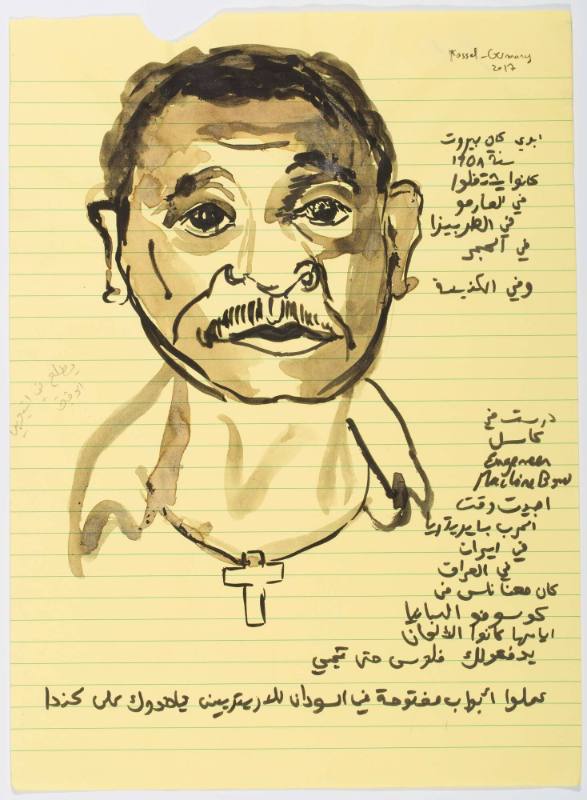 Kassel - Germany
2017
ابوي كان بيروت
سنة ١٩٥٨
كانوا يشتغلوا
في المارمو
في الطربيزا
في الحجر
وفي الكنيسة
درست في
كاسل
Engeneer
Machine Baw
اجيت وقت
الحرب بايريتريا
في ايران
في العراق
كان معنا ناس من
كوسوفو البانيا
ايامها كانوا الألمان
يدفعولك فلوس حتى تيجي
عملوا أبواب مفتوحة في السودان للاريتريين ياخدوك على كندا